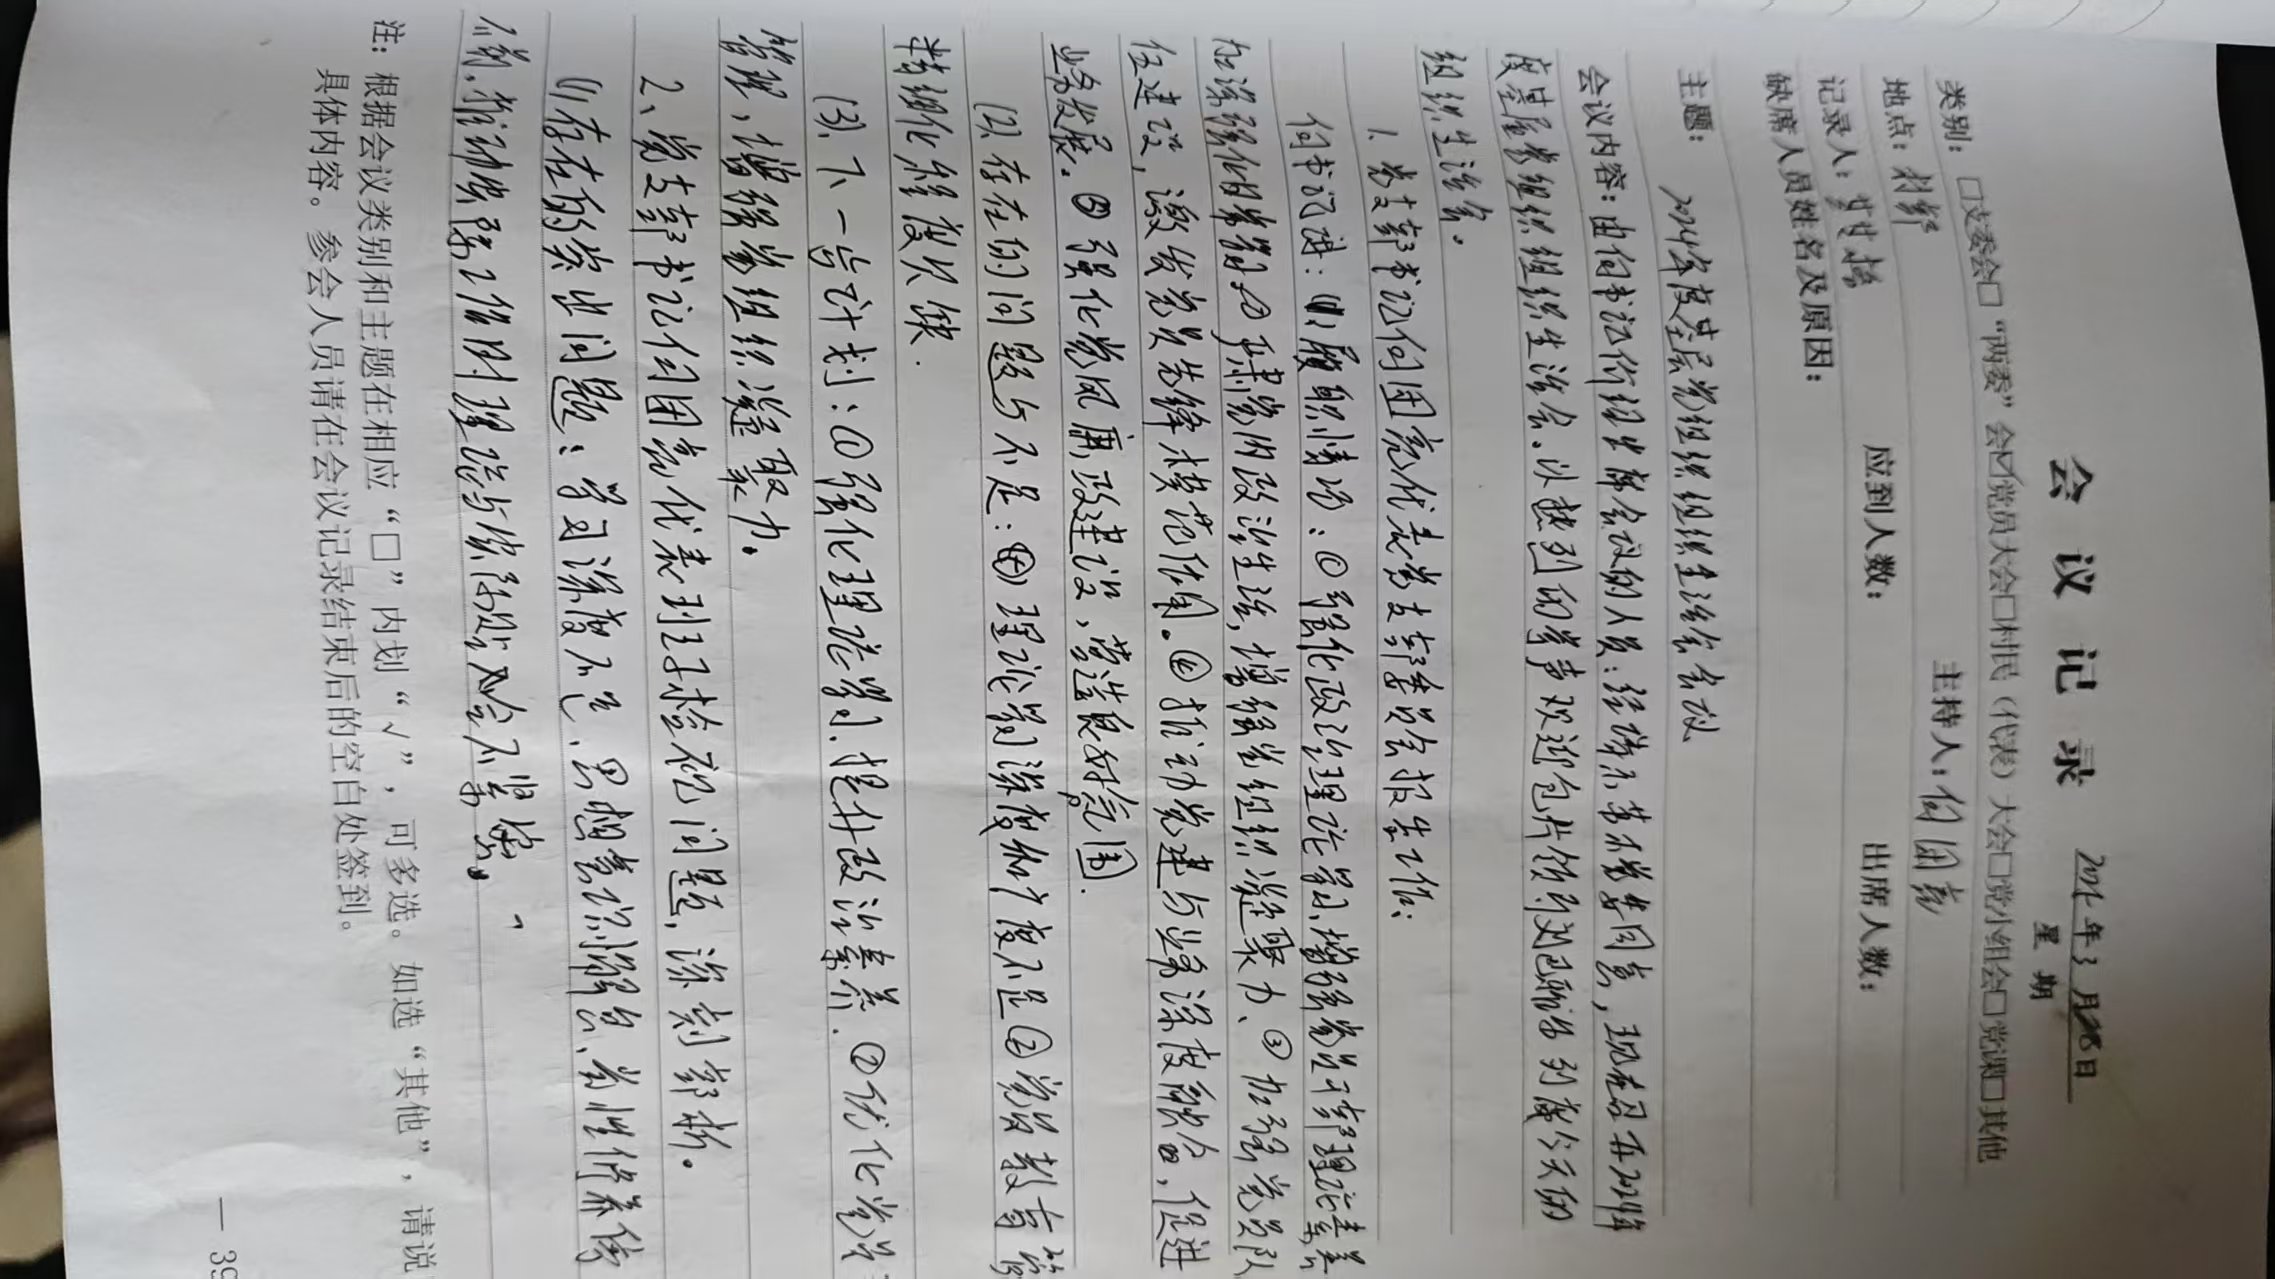 会议记录
2025年3月28日
星期
类别：□支委会□“两委”会☑党员大会□村民（代表）大会□党小组会□党课□其他
地点：村部 主持人：何团亮
记录人： 应到人数： 出席人数：
缺席人员姓名及原因：
主题： 2024年度基层党组织组织生活会会议
会议内容：由何书记介绍出席会议的人员：经请示 党委同意，现在召开2024年
度基层党组织组织生活会、以热烈的掌声欢迎包片领导 到度今天的
组织生活会。
1、党支部书记何团亮代表党支部委员会报告工作：
何书记讲：(1)、履职情况：①强化政治理论学习，增强党员干部理论素养
加深强化内党习②严肃党内政治生活，增强党组织凝聚力、③加强党员队
伍建设，激发党员先锋模范作用。④推动党建与业务深度融合，促进
业务发展。⑤强化党风廉政建设，营造良好氛围.
(2)、存在的问题与不足：①理论学习深度和广度不足②党员教育管
精细化程度欠缺.
(3)、下一步计划：①强化理论学习、提升政治素养.②优化党员
管理，增强党组织凝聚力。
2、党支部书记何团亮代表班子检视问题，深刻剖析。
(1)存在的突出问题：学习深度不足、思想意识懈怠、党性修养待
推动 工作时理论与实际 结合不紧密。
注：根据会议类别和主题在相应“□”内划“√”，可多选。如选“其他”，请说
具体内容。参会人员请在会议记录结束后的空白处签到。
— 39